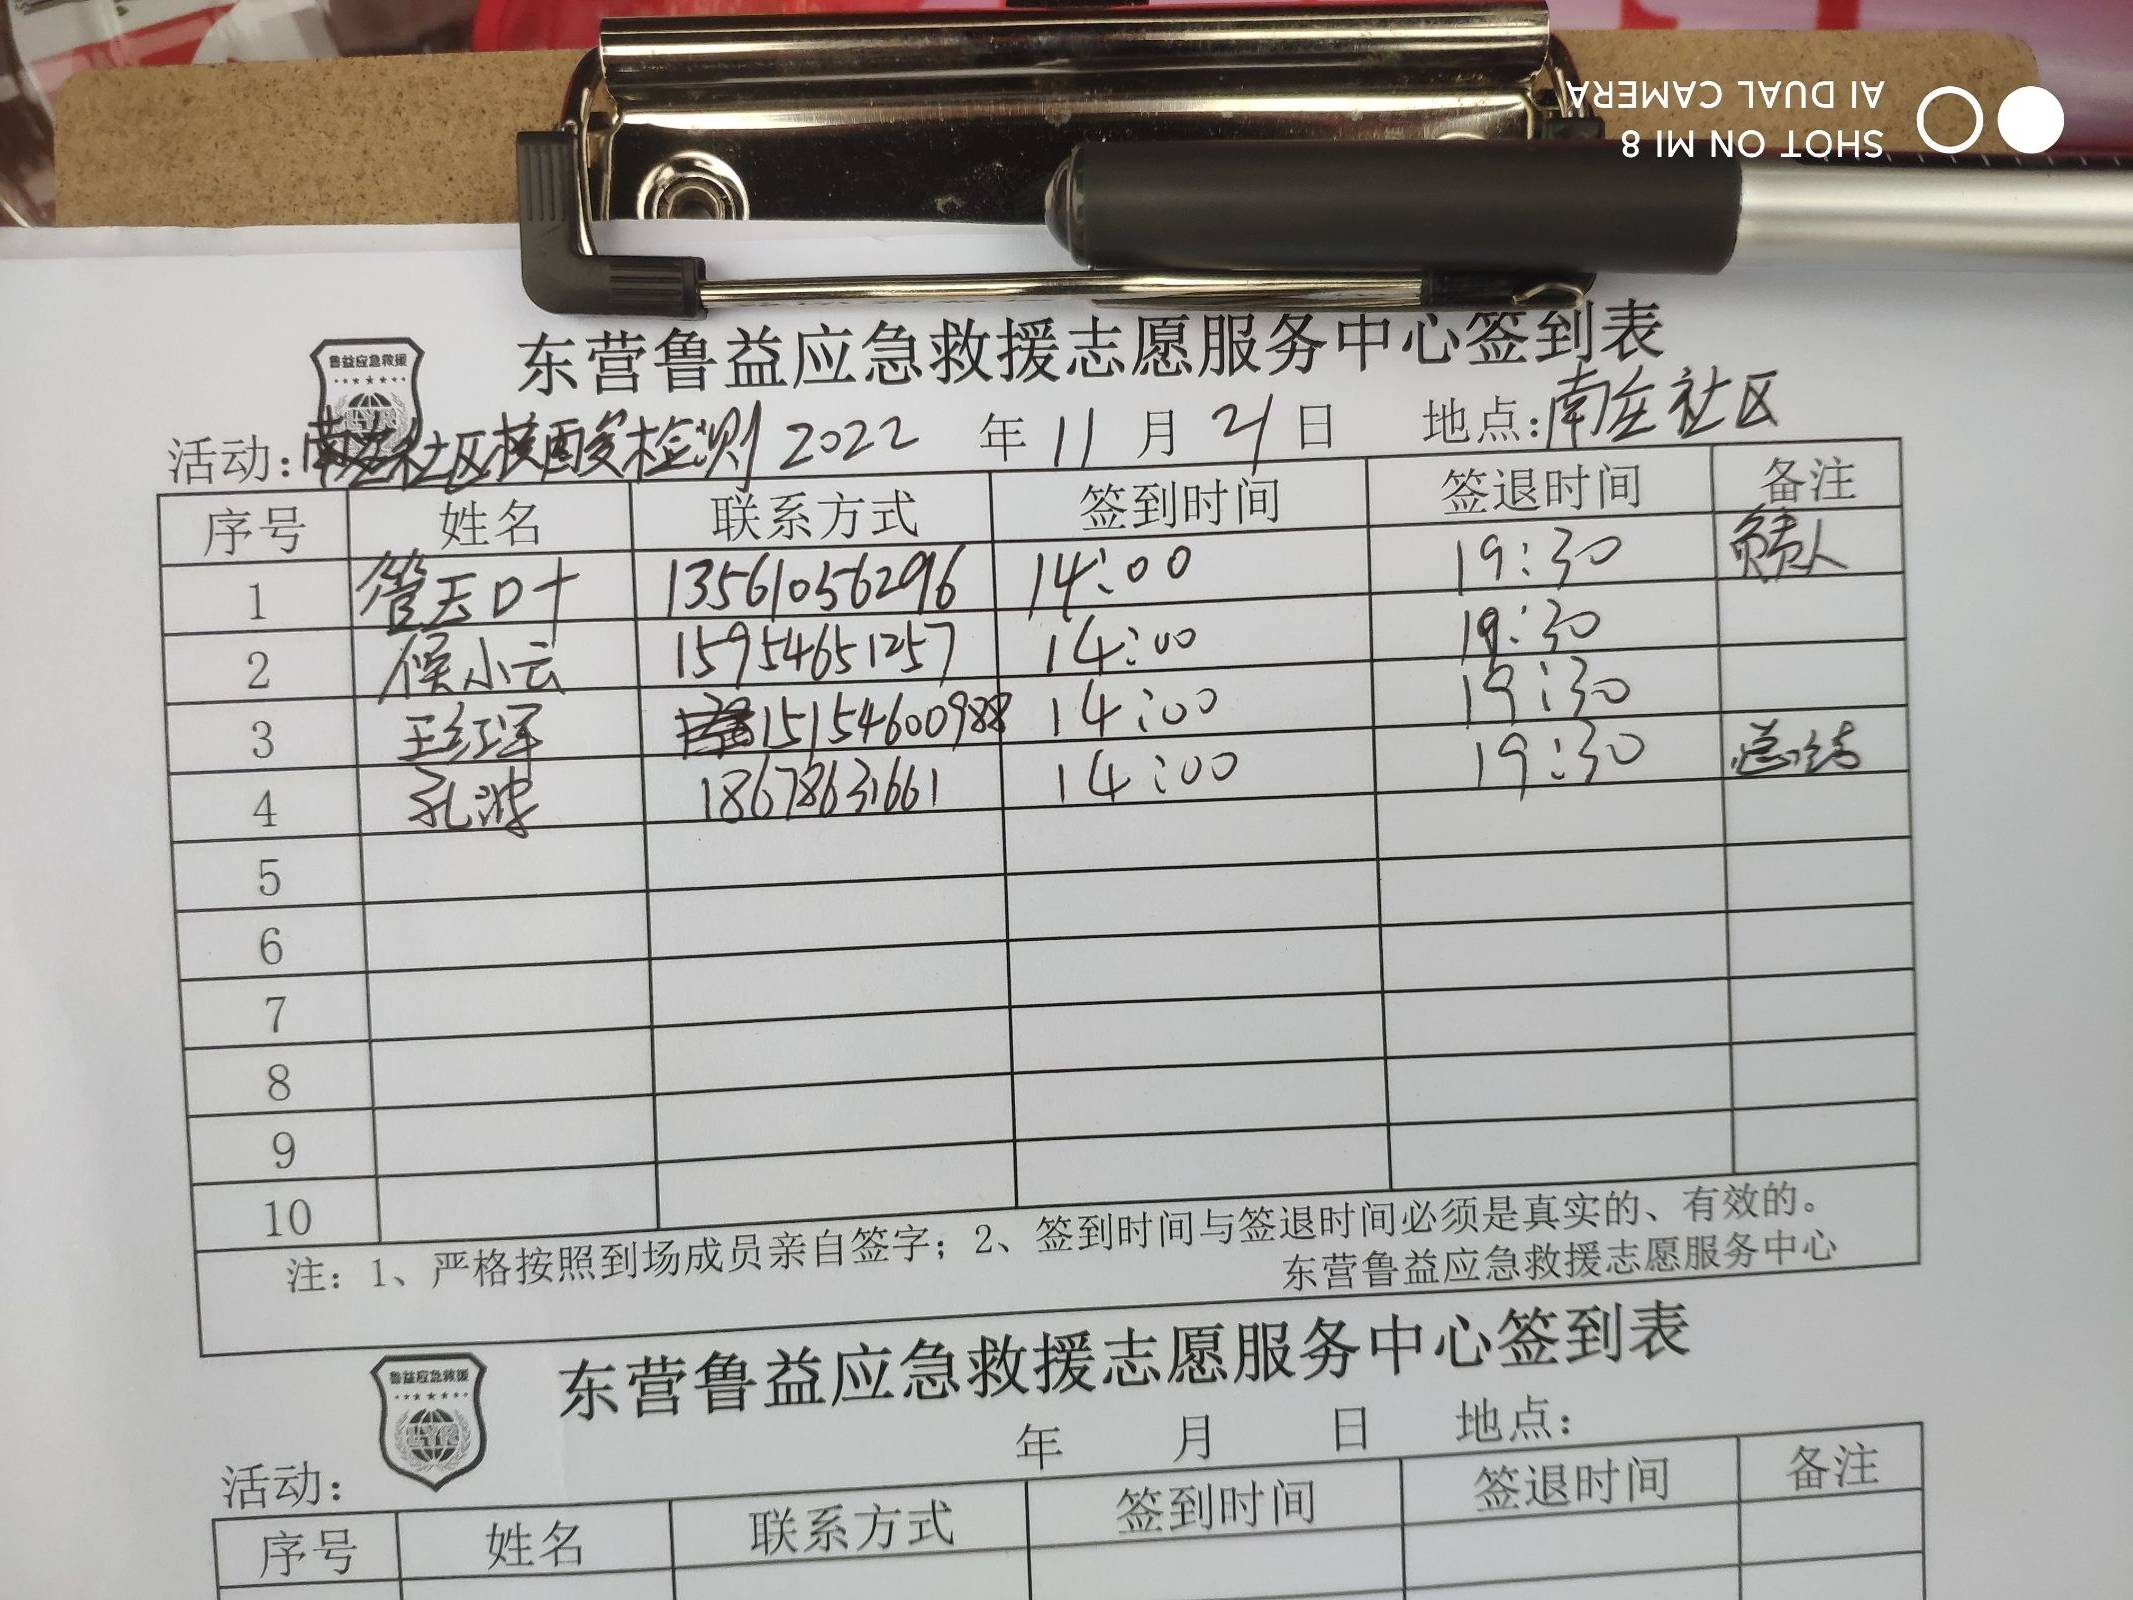 AI DUAL CAMERA
SHOT ON MI 8
东营鲁益应急救援志愿服务中心签到表
鲁益应急救援
活动:南庄社区核酸检测 2022 年 11 月 21 日 地点:南庄社区
序号 姓名 联系方式 签到时间 签退时间 备注
1 管天叶 13561056296 14:00 19:30 负责人
2 侯小云 15954651257 14:00 19:30
3 王红军 15154600988 14:00 19:30
4 孔波 18678631661 14:00 19:30 总结
5
6
7
8
9
10
注：1、严格按照到场成员亲自签字；2、签到时间与签退时间必须是真实的、有效的。
东营鲁益应急救援志愿服务中心
东营鲁益应急救援志愿服务中心签到表
鲁益应急救援
LYR
活动： 年 月 日 地点：
序号 姓名 联系方式 签到时间 签退时间 备注